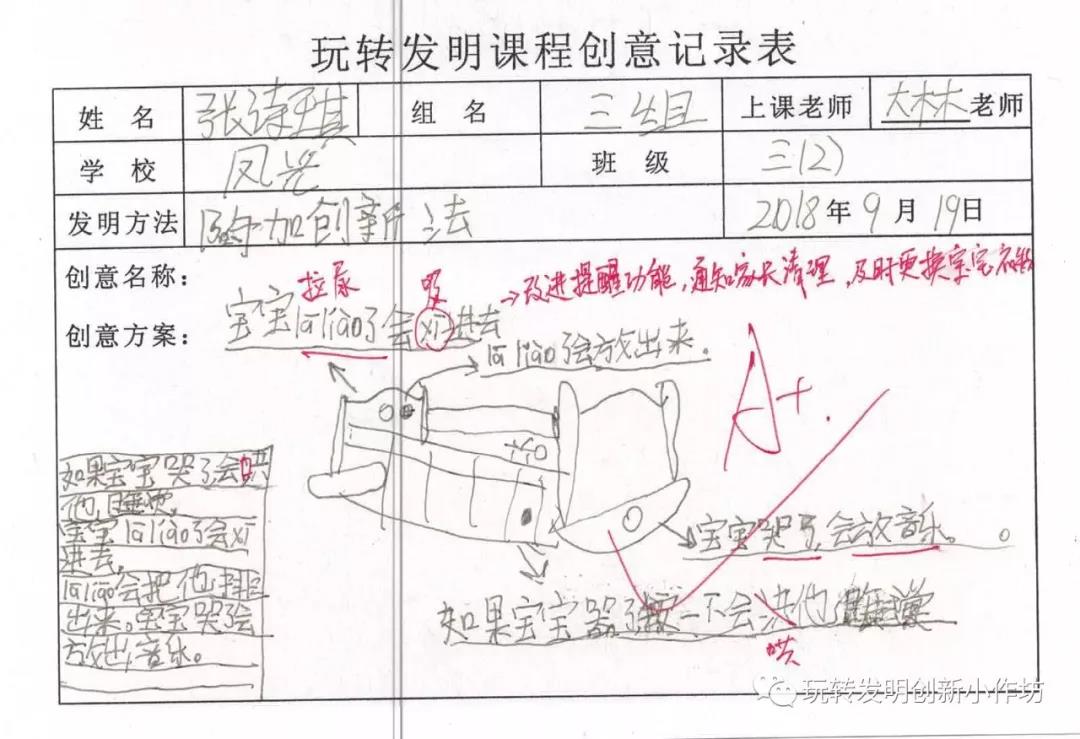 玩转发明课程创意记录表
姓 名 张诗琪 组 名 三组 上课老师 大林老师
学 校 凤凰 班 级 三(2)
发明方法 附加创新法 2018年9月19日
创意名称：
拉尿 吸 →改进提醒功能，通知家长清理，及时更换宝宝衣物
创意方案： 宝宝lāliào了会xī进去
lāliào了会放出来。
A+.
如果宝宝哭了会哄
他睡觉，
宝宝lāliào了会xī
进去，
lāliào会把他排
出来。宝宝哭了会
放出音乐。
宝宝哭了，会放音乐。
如果宝宝哭了按一下会洪他睡觉
哄
玩转发明创新小作坊